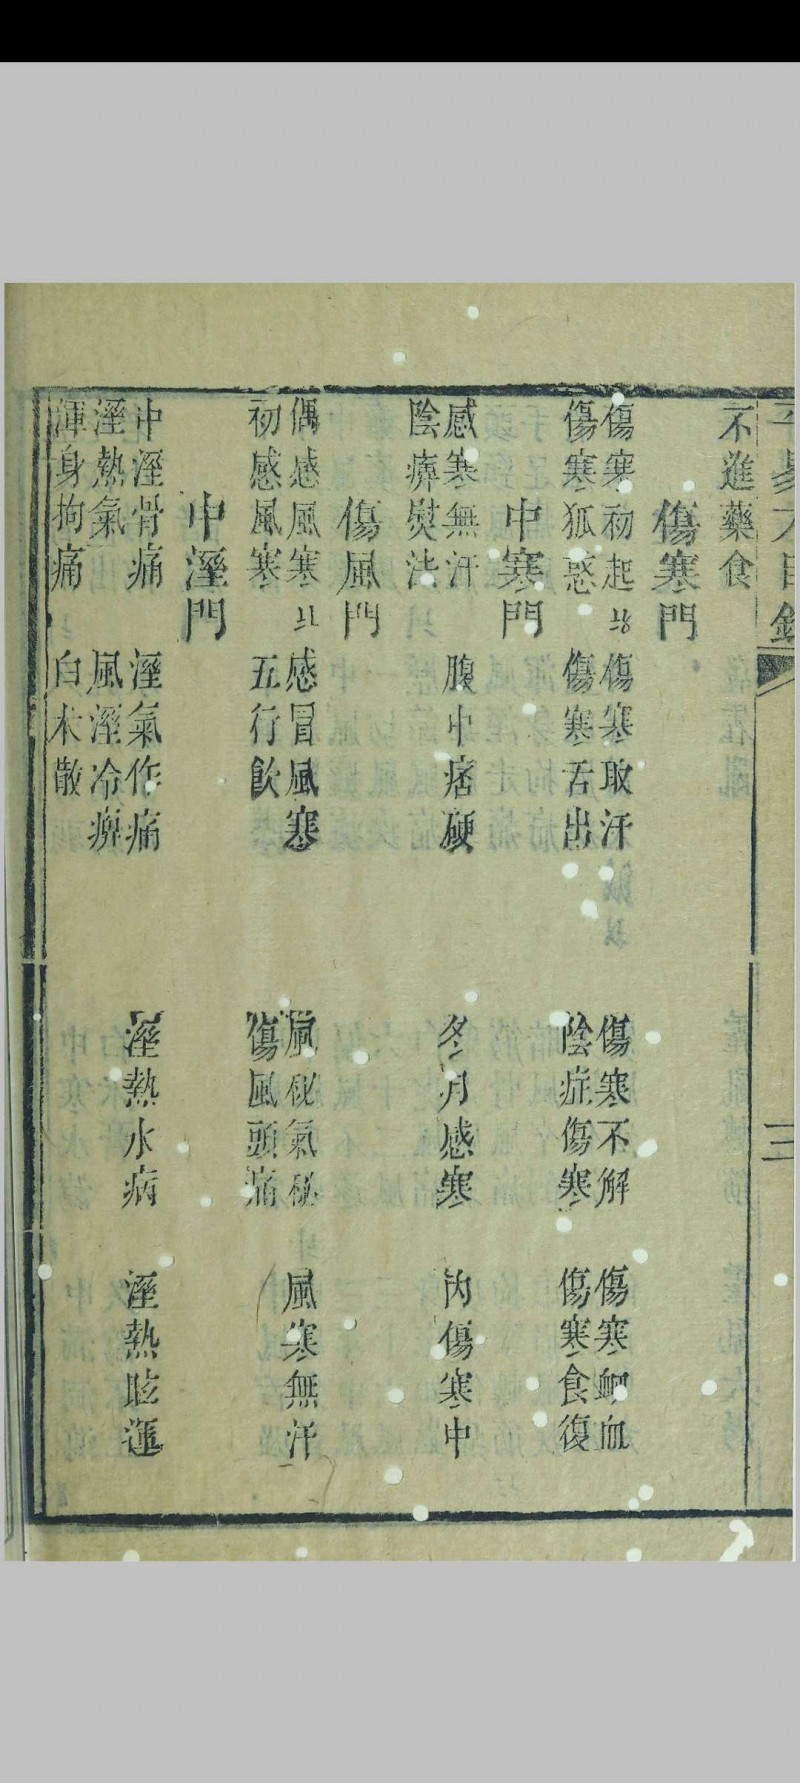 不進藥食
傷寒門
傷寒初起 傷寒敢汗 傷寒不解 傷寒衂血
傷寒狐惑 傷寒舌出 陰症傷寒 傷寒食復
中寒門
感寒無汗 腹中痞硬 冬月感寒 內傷寒中
陰痹熨法
傷風門
偶感風寒 感冒風寒 風秘氣秘 風寒無汗
初感風寒 五行飲 傷風頭痛
中溼門
中溼骨痛 溼氣作痛 溼熱水病 溼熱眩運
溼熱氣 風溼冷痹
渾身拘痛 白朮散
三